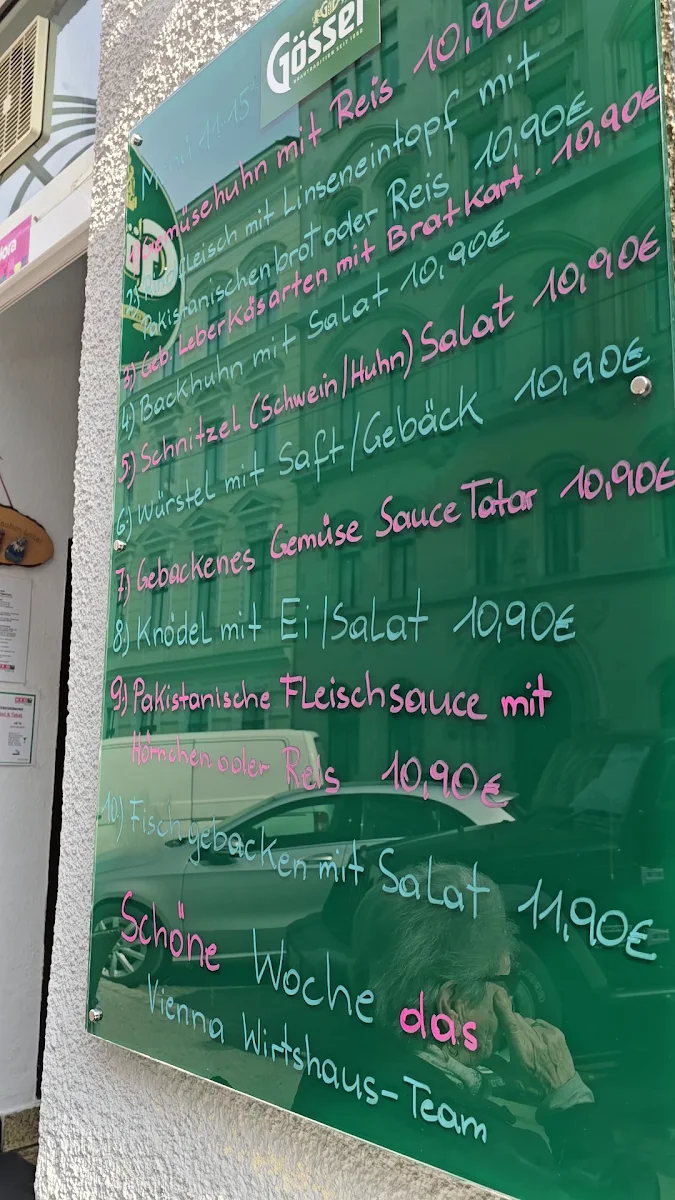 Gösser
BRAUTRADITION SEIT 1860
Menü 11-15⁰⁰
1) Gemüsehuhn mit Reis 10,90€
2) fleisch mit Linseneintopf mit
Pakistanischenbrot oder Reis 10,90€
3) Geb. Leberkäsarten mit BratKart. 10,90€
4) Backhuhn mit Salat 10,90€
5) Schnitzel (Schwein/Huhn) Salat 10,90€
6) Würstel mit Saft/Gebäck 10,90€
7) Gebackenes Gemüse Sauce Tatar 10,90€
8) Knödel mit Ei/Salat 10,90€
9) Pakistanische Fleischsauce mit
Hörnchen oder Reis 10,90€
10) Fisch gebacken mit Salat 11,90€
Schöne Woche das
Vienna Wirtshaus-Team